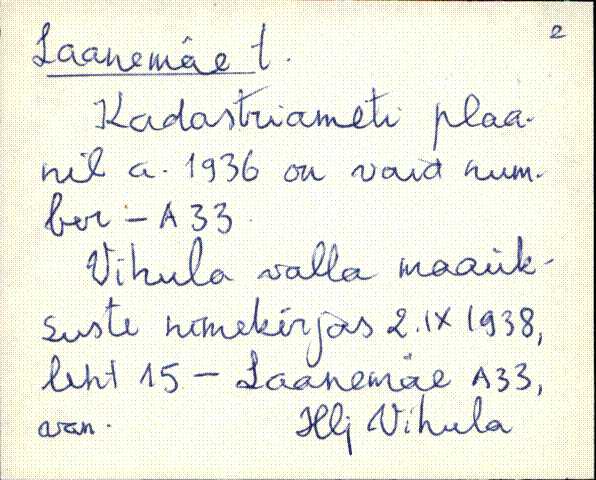 2
Laanemäe t.
Kadastriameti plaa-
nil a. 1936 on vaid num-
ber - A 33.
Vihula valla maaük-
suste nimekirjas 2.IX 1938,
leht 15 - Laanemäe A33,
Hlj Vihula